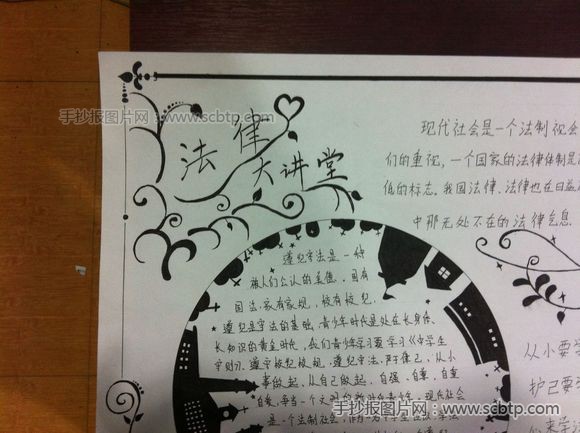 手抄报图片网 www.scbtp.com
法律
大讲堂
现代社会是一个法制社会
们的重视，一个国家的法律体制是
低的标志。我国法律、法律也在日益
中那无处不在的法律气息
遵纪守法是一种
被人们公认的美德，国有
国法，家有家规，校有校纪，
遵纪是守法的基础，青少年时代是处在长身体、
长知识的黄金时代，我们青少年学习要学习《中学生
守则》，遵守校纪校规，遵纪守法，严于律己，从小
事做起，从自己做起，自强、自尊、自重
自爱，争当一个文明
是一个法制社会，作为一名中学生应该学法
从小要学
护己要
手抄报图片网：www.scbtp.com